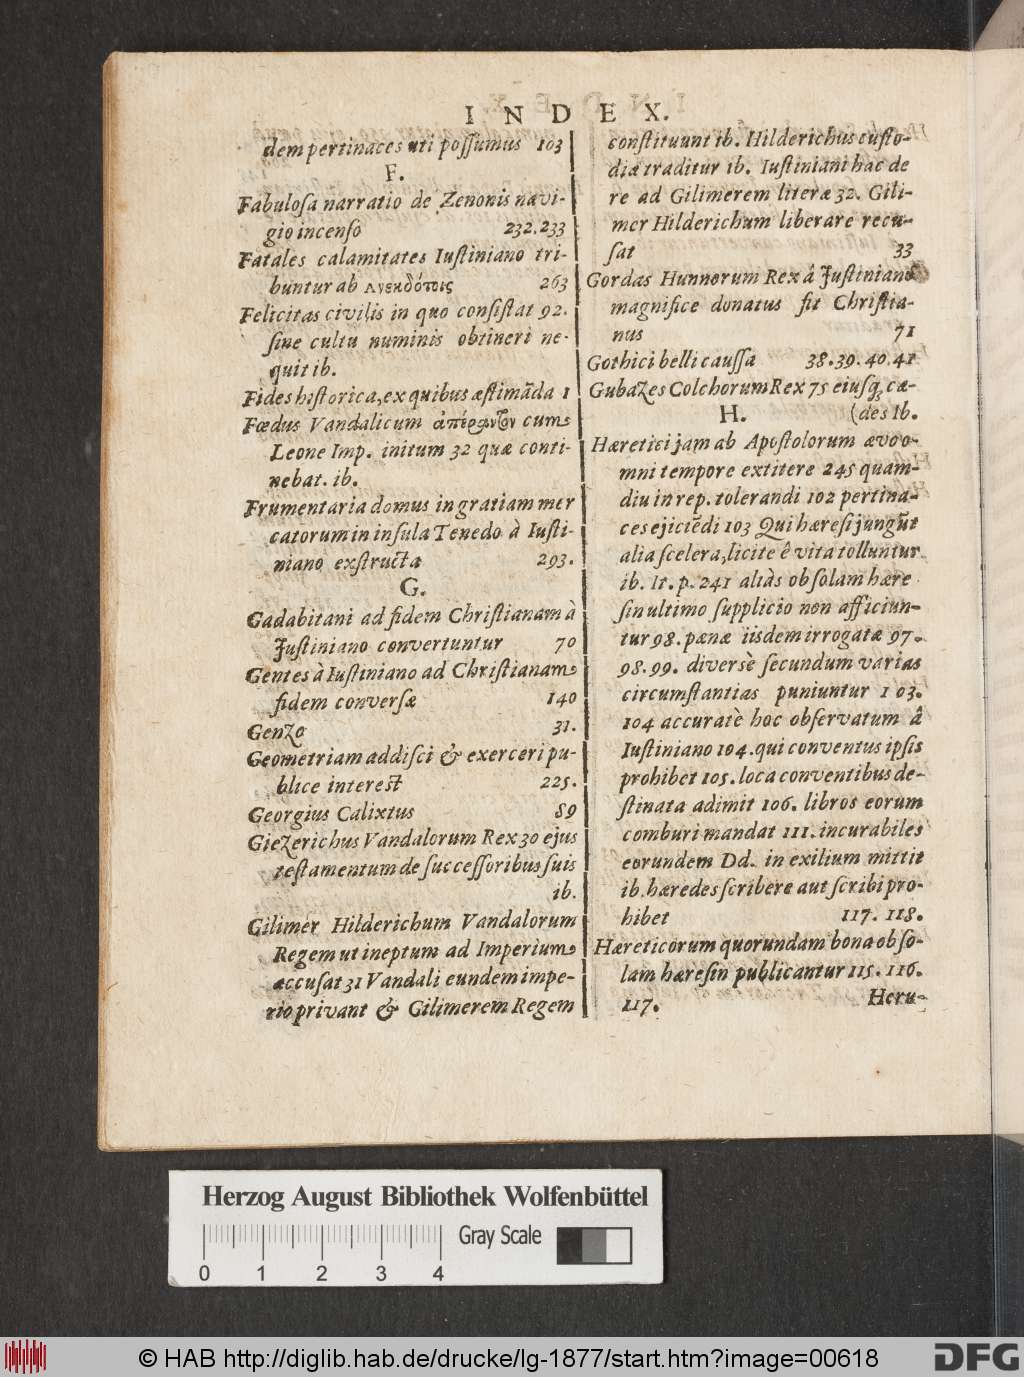 INDEX.
dem pertinaces uti poſſumus 103
F.
Fabuloſa narratio de Zenonis navi-
gio incenſo 232.233
Fatales calamitates Iuſtiniano tri-
buntur ab Ανεκδότοις 263
Felicitas civilis in quo conſiſtat 92.
ſine cultu numinis obtineri ne-
quit ib.
Fides hiſtorica, ex quibus æſtimāda 1
Fœdus Vandalicum ἀπέραντον cum
Leone Imp. initum 32 quæ conti-
nebat. ib.
Frumentaria domus in gratiam mer
catorum in inſula Tenedo à Iuſti-
niano exſtructa 293.
G.
Gadabitani ad fidem Chriſtianam à
Juſtiniano convertuntur 70
Gentes à Iuſtiniano ad Chriſtianam
fidem converſæ 140
Genzo 31.
Geometriam addiſci & exerceri pu-
blice intereſt 225.
Georgius Calixtus 89
Giezerichus Vandalorum Rex 30 ejus
teſtamentum de ſucceſſoribus ſuis
ib.
Gilimer Hilderichum Vandalorum
Regem ut ineptum ad Imperium
accuſat 31 Vandali eundem impe-
rio privant & Gilimerem Regem
conſtituunt ib. Hilderichus cuſto-
diæ traditur ib. Iuſtiniani hac de
re ad Gilimerem literæ 32. Gili-
mer Hilderichum liberare recu-
ſat 33
Gordas Hunnorum Rex â Juſtiniano
magnifice donatus fit Chriſtia-
nus 71
Gothici belli cauſſa 38.39.40.41
Gubazes Colchorum Rex 75 eiuſq; cæ-
H. (des Ib.
Hæretici jam ab Apoſtolorum ævo o-
mni tempore extitere 245 quam-
diu in rep. tolerandi 102 pertina-
ces ejiciēdi 103 Qui hæreſi jungūt
alia ſcelera, licite ê vita tolluntur
ib. It. p. 241 aliàs ob ſolam hære
ſin ultimo ſupplicio non afficiun-
tur 98. pænæ iisdem irrogatæ 97.
98.99. diversè ſecundum varias
circumſtantias puniuntur 103.
104 accuratè hoc obſervatum â
Iuſtiniano 104. qui conventus ipſis
prohibet 105. loca conventibus de-
ſtinata adimit 106. libros eorum
comburi mandat 111. incurabiles
eorundem Dd. in exilium mittit
ib. hæredes ſcribere aut ſcribi pro-
hibet 117. 118.
Hæreticorum quorundam bona ob ſo-
lam hæreſin publicantur 115. 116.
117. Heru-
Herzog August Bibliothek Wolfenbüttel
Gray Scale
0 1 2 3 4
© HAB http://diglib.hab.de/drucke/lg-1877/start.htm?image=00618
DFG